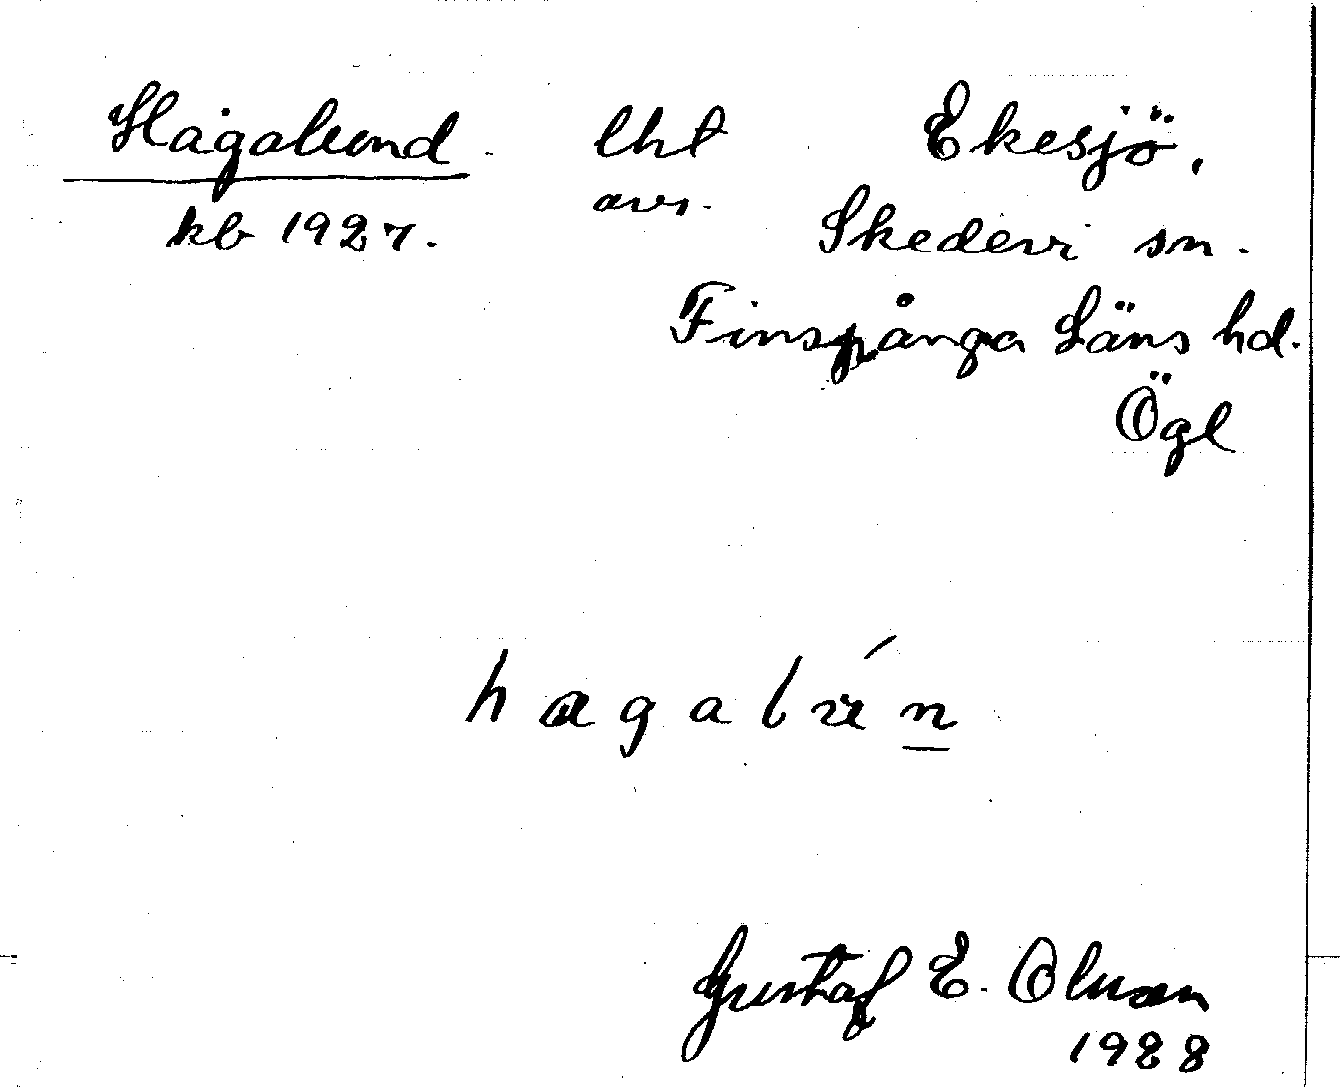 Hagalund lht Ekesjö,
kb 1927. avs. Skedevi sn.
Finspånga Läns hd.
Ögl
hagalún
Gustaf E. Olsson
1928